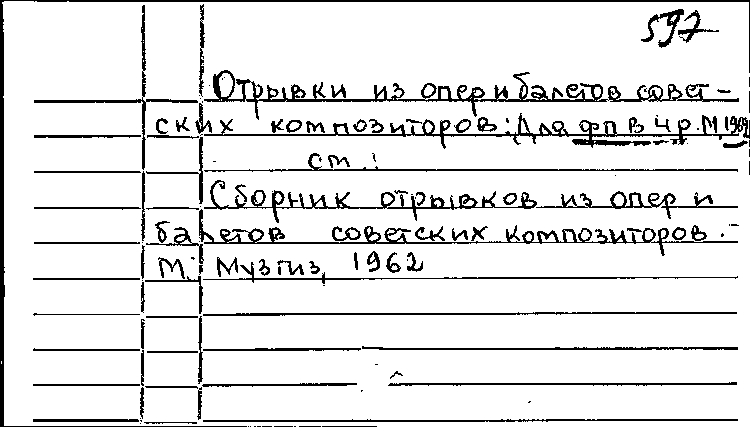 597
Отрывки из опер и балетов совет-
ских композиторов: Для фп в 4 р. М, 1969
см.:
Сборник отрывков из опер и
балетов советских композиторов. -
М.: Музгиз, 1962